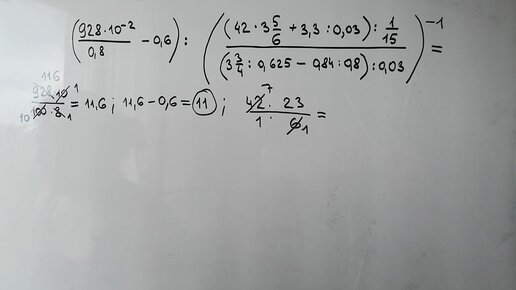 (928·10⁻²/0,8 − 0,6) : ((42·3 5/6 + 3,3:0,03) : 1/15 / (3 3/4 : 0,625 − 0,84:0,8) : 0,03)⁻¹ =
116 1 7
928·10/100·8 = 11,6 ; 11,6 − 0,6 = 11 ; 42·23/1·6 =
10 1 1